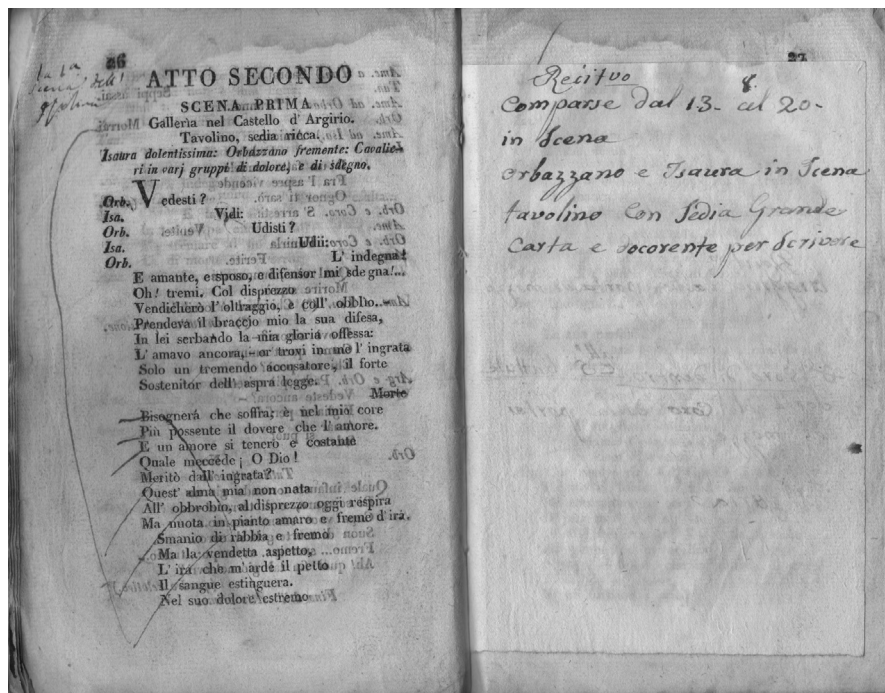 26
ATTO SECONDO
SCENA PRIMA
Galleria nel Castello d' Argirio.
Tavolino, sedia ricca.
Isaura dolentissima: Orbazzano fremente: Cavalie-
ri in varj gruppi di dolore, e di sdegno.
Orb. Vedesti?
Isa. Vidi:
Orb. Udisti?
Isa. Udii:
Orb. L' indegna!
E amante, e sposo, e difensor mi sdegna!...
Oh! tremi. Col disprezzo
Vendicherò l'oltraggio, e coll' obblio..-
Prendeva il braccio mio la sua difesa,
In lei serbando la mia gloria offessa:
L' amavo ancora, - or trovi in me l' ingrata
Solo un tremendo accusatore, il forte
Sostenitor dell' aspra legge.
Morte
Bisognerà che soffra; è nel mio core
Più possente il dovere che l' amore.
E un amore si tenero e costante
Quale meccède; O Dio!
Meritò dall' ingrata?
Quest' alma mia non nata
All' obbrobrio, al disprezzo oggi respira
Ma nuota in pianto amaro e freme d' ira.
Smanio di rabbia e fremo
Ma la vendetta aspetto,
L' ira che m'arde il petto
Il sangue estinguera.
Nel suo dolore estremo
27
Recitvo
8.
Comparse dal 13- al 20-
in Scena
orbazzano e Isaura in Scena
tavolino Con Sedia Grande
Carta e ocorente per Scrivere